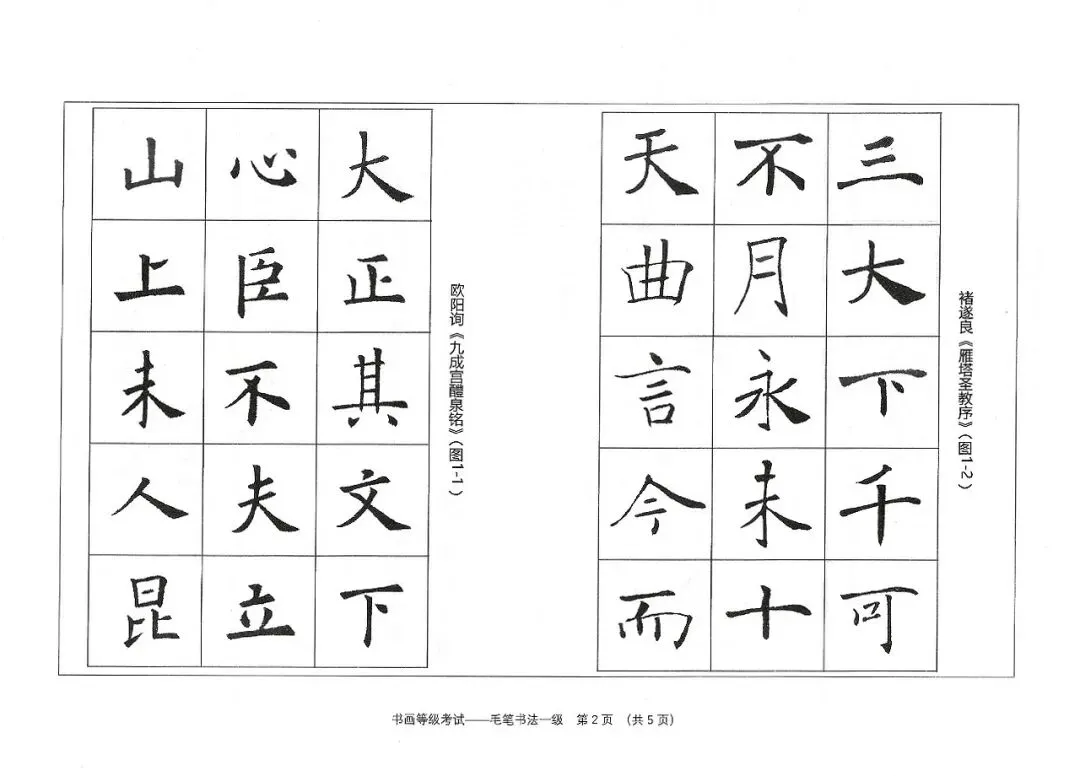 褚遂良《雁塔圣教序》（图1-2）
三大下千可
不月永未十
天曲言今而
欧阳询《九成宫醴泉铭》（图1-1）
大正其文下
心臣不夫立
山上未人昆
书画等级考试——毛笔书法一级 第2页 （共5页）